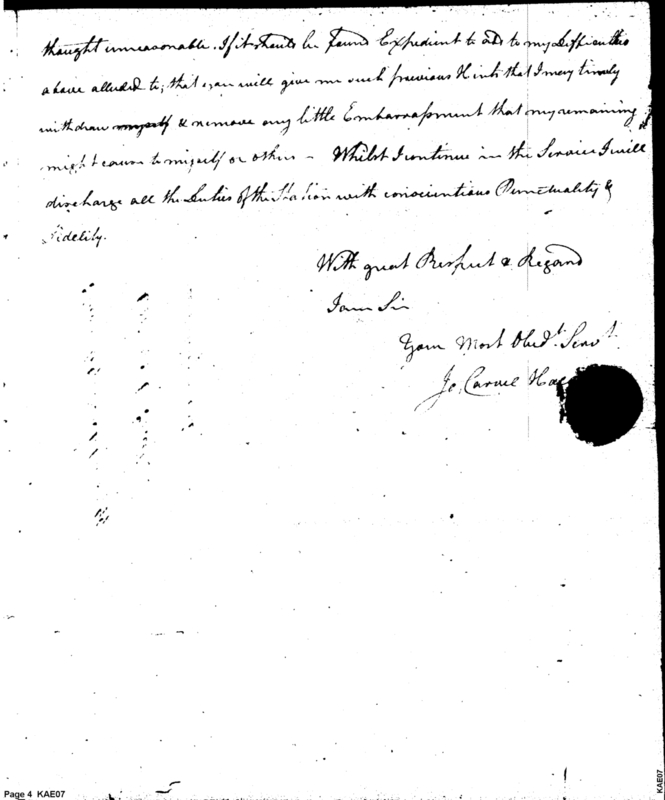 thought unreasonable. If it should be found Expedient to add to my Difficulties
above alluded to, that you will give me such previous Hints that I may timely
withdraw myself & remove any little Embarrassment that my remaining
might cause to myself or others - Whilst I continue in the Service I will
discharge all the Duties of the Station with conscientious Punctuality &
Fidelity.
With great Respect & Regard
I am Sir
Your Most Obedt. Servt.
Jo. Carvel
Page 4 KAE07
KAE07